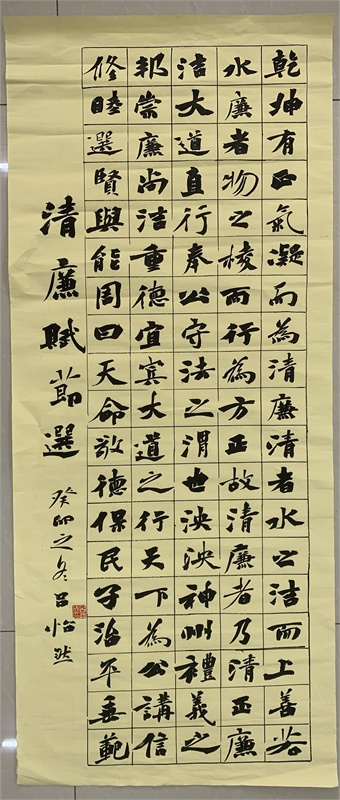 乾坤有正氣凝而為清廉清者水之洁而上善若
水廉者物之棱而行為方正故清廉者乃清正廉
洁大道直行奉公守法之謂也泱泱神州禮義之
邦崇廉尚洁重德宜賓大道之行天下為公講信
修睦選賢與能周曰天命敬德保民子治平垂範
清廉賦節選
癸卯之冬呂怡然